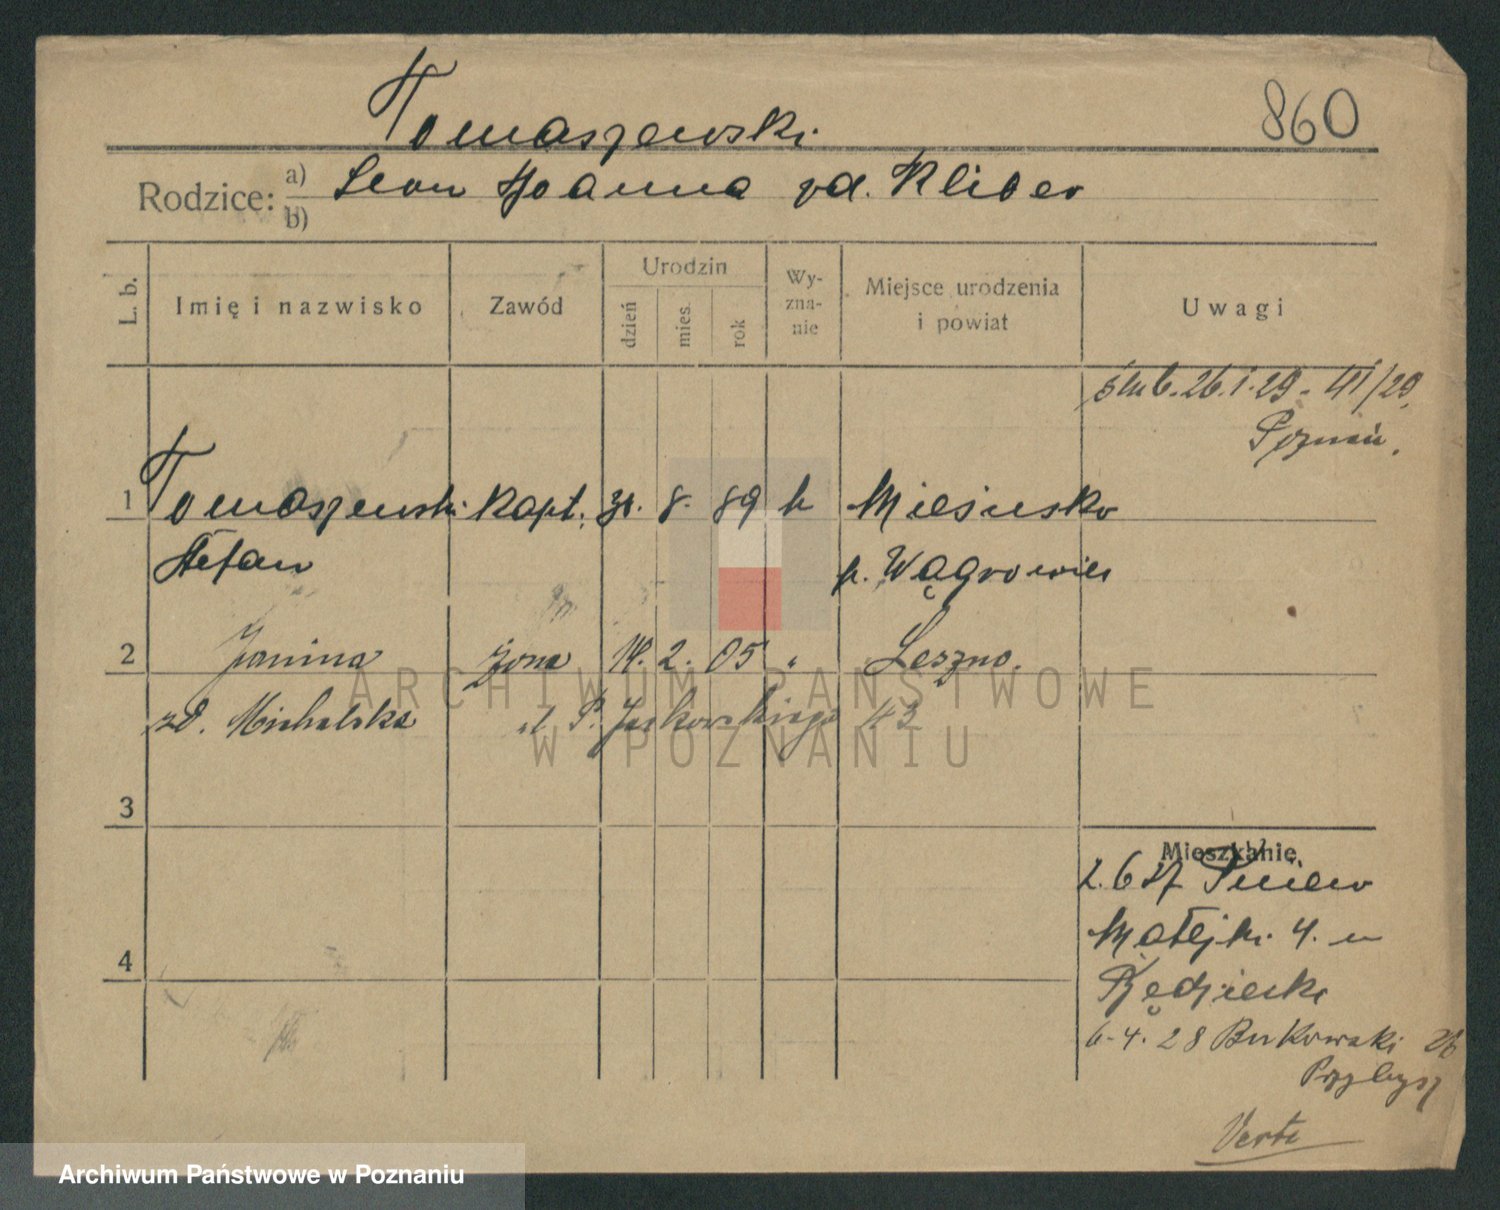 860
Tomaszewski
Rodzice: a) Leon Joanna zd. Kliber
b)
L. b. Imię i nazwisko Zawód Urodzin dzień mies. rok Wy-zna-nie Miejsce urodzenia i powiat Uwagi
ślub. 26.1.29 - 41/29
Poznań.
1 Tomaszewski Kapt. 31. 8. 89 k Mieścisko
Stefan p. Wągrowiec
2 Janina żona 14. 2. 05 " Leszno.
zd. Michalska
3
Mieszkanie
Matejki 4. u
4
6-4.28 Bukowski
Przybysz
Verte
ARCHIWUM PAŃSTWOWE
W POZNANIU
Archiwum Państwowe w Poznaniu